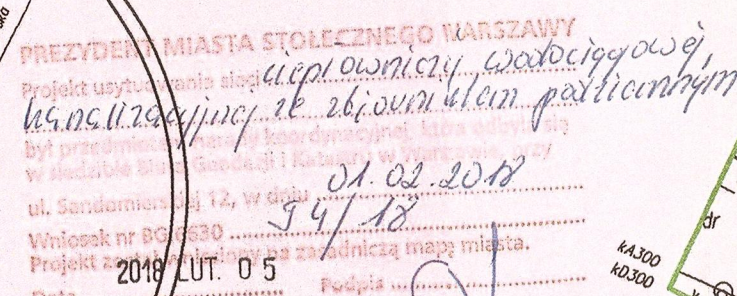 PREZYDENT MIASTA STOŁECZNEGO WARSZAWY
Projekt usytuowania sieci ciepłowniczej, wodociągowej,
kanalizacyjnej ze zbiornikiem podziemnym
był przedmiotem narady koordynacyjnej, która odbyła się
w siedzibie Biura Geodezji i Katastru w Warszawie, przy
ul. Sandomierskiej 12, w dniu 01.02.2018
Wniosek nr BG.6630 94/18
Projekt został wniesiony na zasadniczą mapę miasta.
2018 LUT. 05
Data Podpis
dr
kA300
kD300